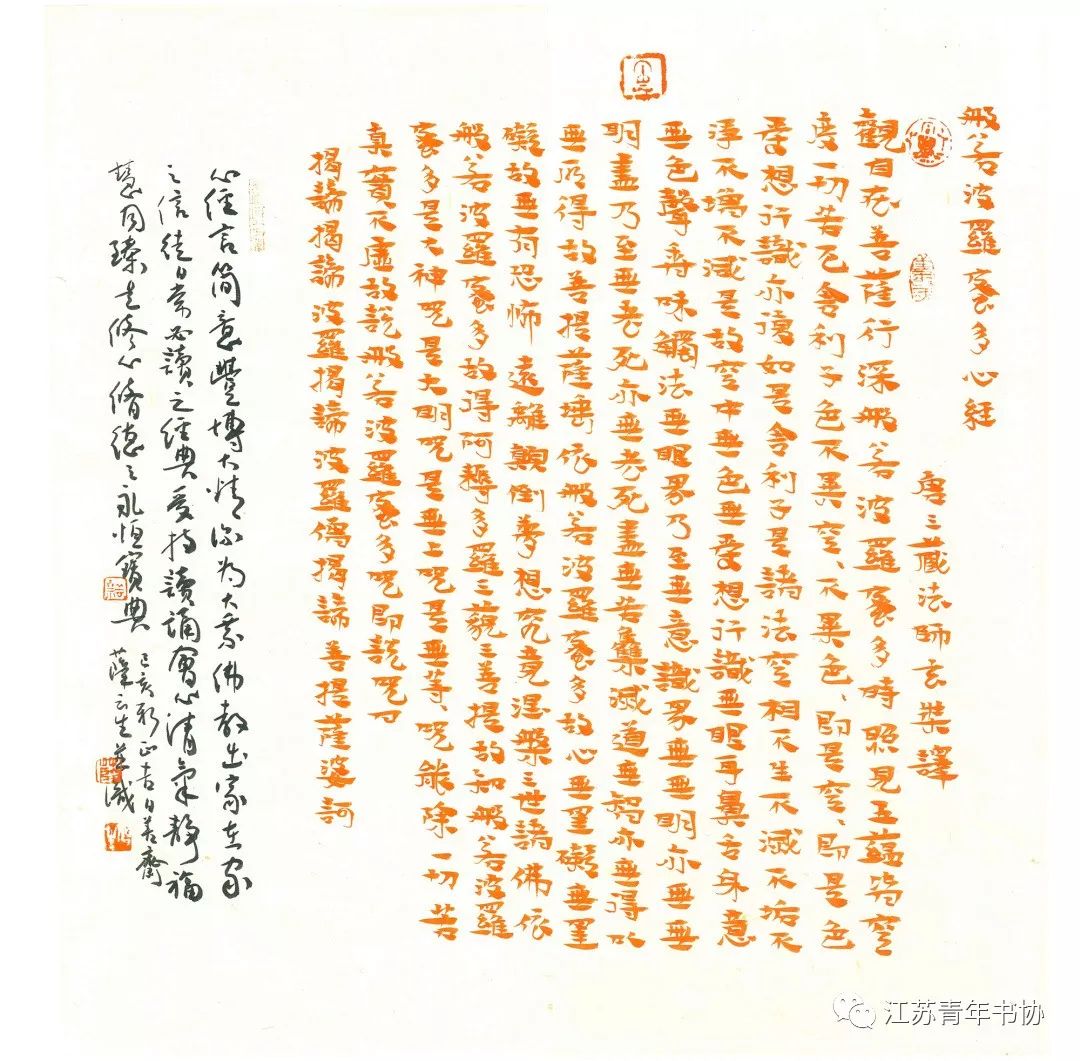 般若波羅蜜多心経
唐三藏法師玄奘譯
觀自在菩薩行深般若波羅蜜多時照見五蘊皆空
度一切苦厄舍利子色不異空、不異色、即是空、即是色
受想行識亦復如是舍利子是諸法空相不生不滅不垢不
淨不增不減是故空中無色無受想行識無眼耳鼻舌身意
無色聲香味觸法無眼界乃至無意識界無無明亦無無
明盡乃至無老死亦無老死盡無苦集滅道無智亦無得以
無所得故菩提薩埵依般若波羅蜜多故心無罣礙無罣
礙故無有恐怖遠離顛倒夢想究竟涅槃三世諸佛依
般若波羅蜜多故得阿耨多羅三藐三菩提故知般若波羅
蜜多是大神咒是大明咒是無上咒是無等、咒能除一切苦
真實不虛故說般若波羅蜜多咒即說咒曰
揭諦揭諦波羅揭諦波羅僧揭諦菩提薩婆訶
心經言简意豐博大精深為大乘佛教出家在家
之信徒日常必讀之經典受持讀誦會心清氣靜福
慧同臻是修心脩德之永恒寶典
己亥新正吉日若齋
生並識
江苏青年书协